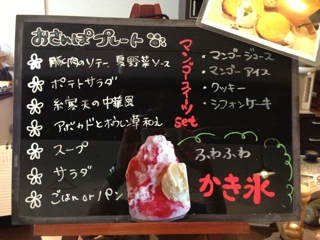 おさんぽプレート
豚肉のソテー、夏野菜ソース
ポテトサラダ
糸寒天の中華風
アボカドとホウレン草和え
スープ
サラダ
ごはん or パン
マンゴースイーツ set
・マンゴージュース
・マンゴーアイス
・クッキー
・シフォンケーキ
ふわふわ
かき氷